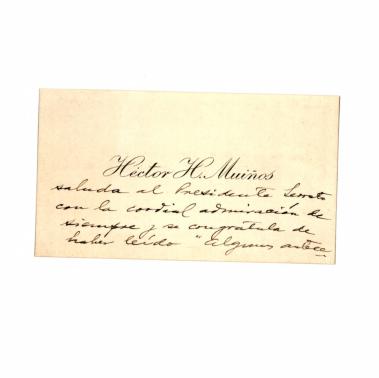 Héctor H. Muiños
saluda al Presidente Serrato
con la cordial admiración de
siempre y se congratula de
haber leído "Algunos antece